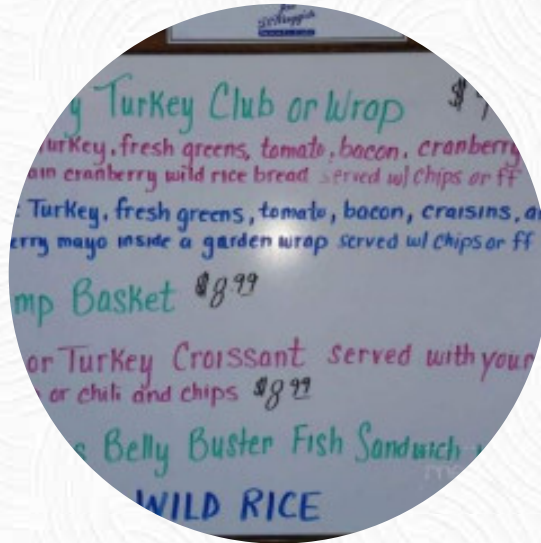 y Turkey Club or Wrap $
urkey, fresh greens, tomato, bacon, cranberry
ain cranberry wild rice bread served w/ chips or ff
: Turkey, fresh greens, tomato, bacon, craisins, a
erry mayo inside a garden wrap served w/ chips or ff
mp Basket $8.99
or Turkey Croissant served with your
or chili and chips $8.99
s Belly Buster Fish Sandwich
WILD RICE